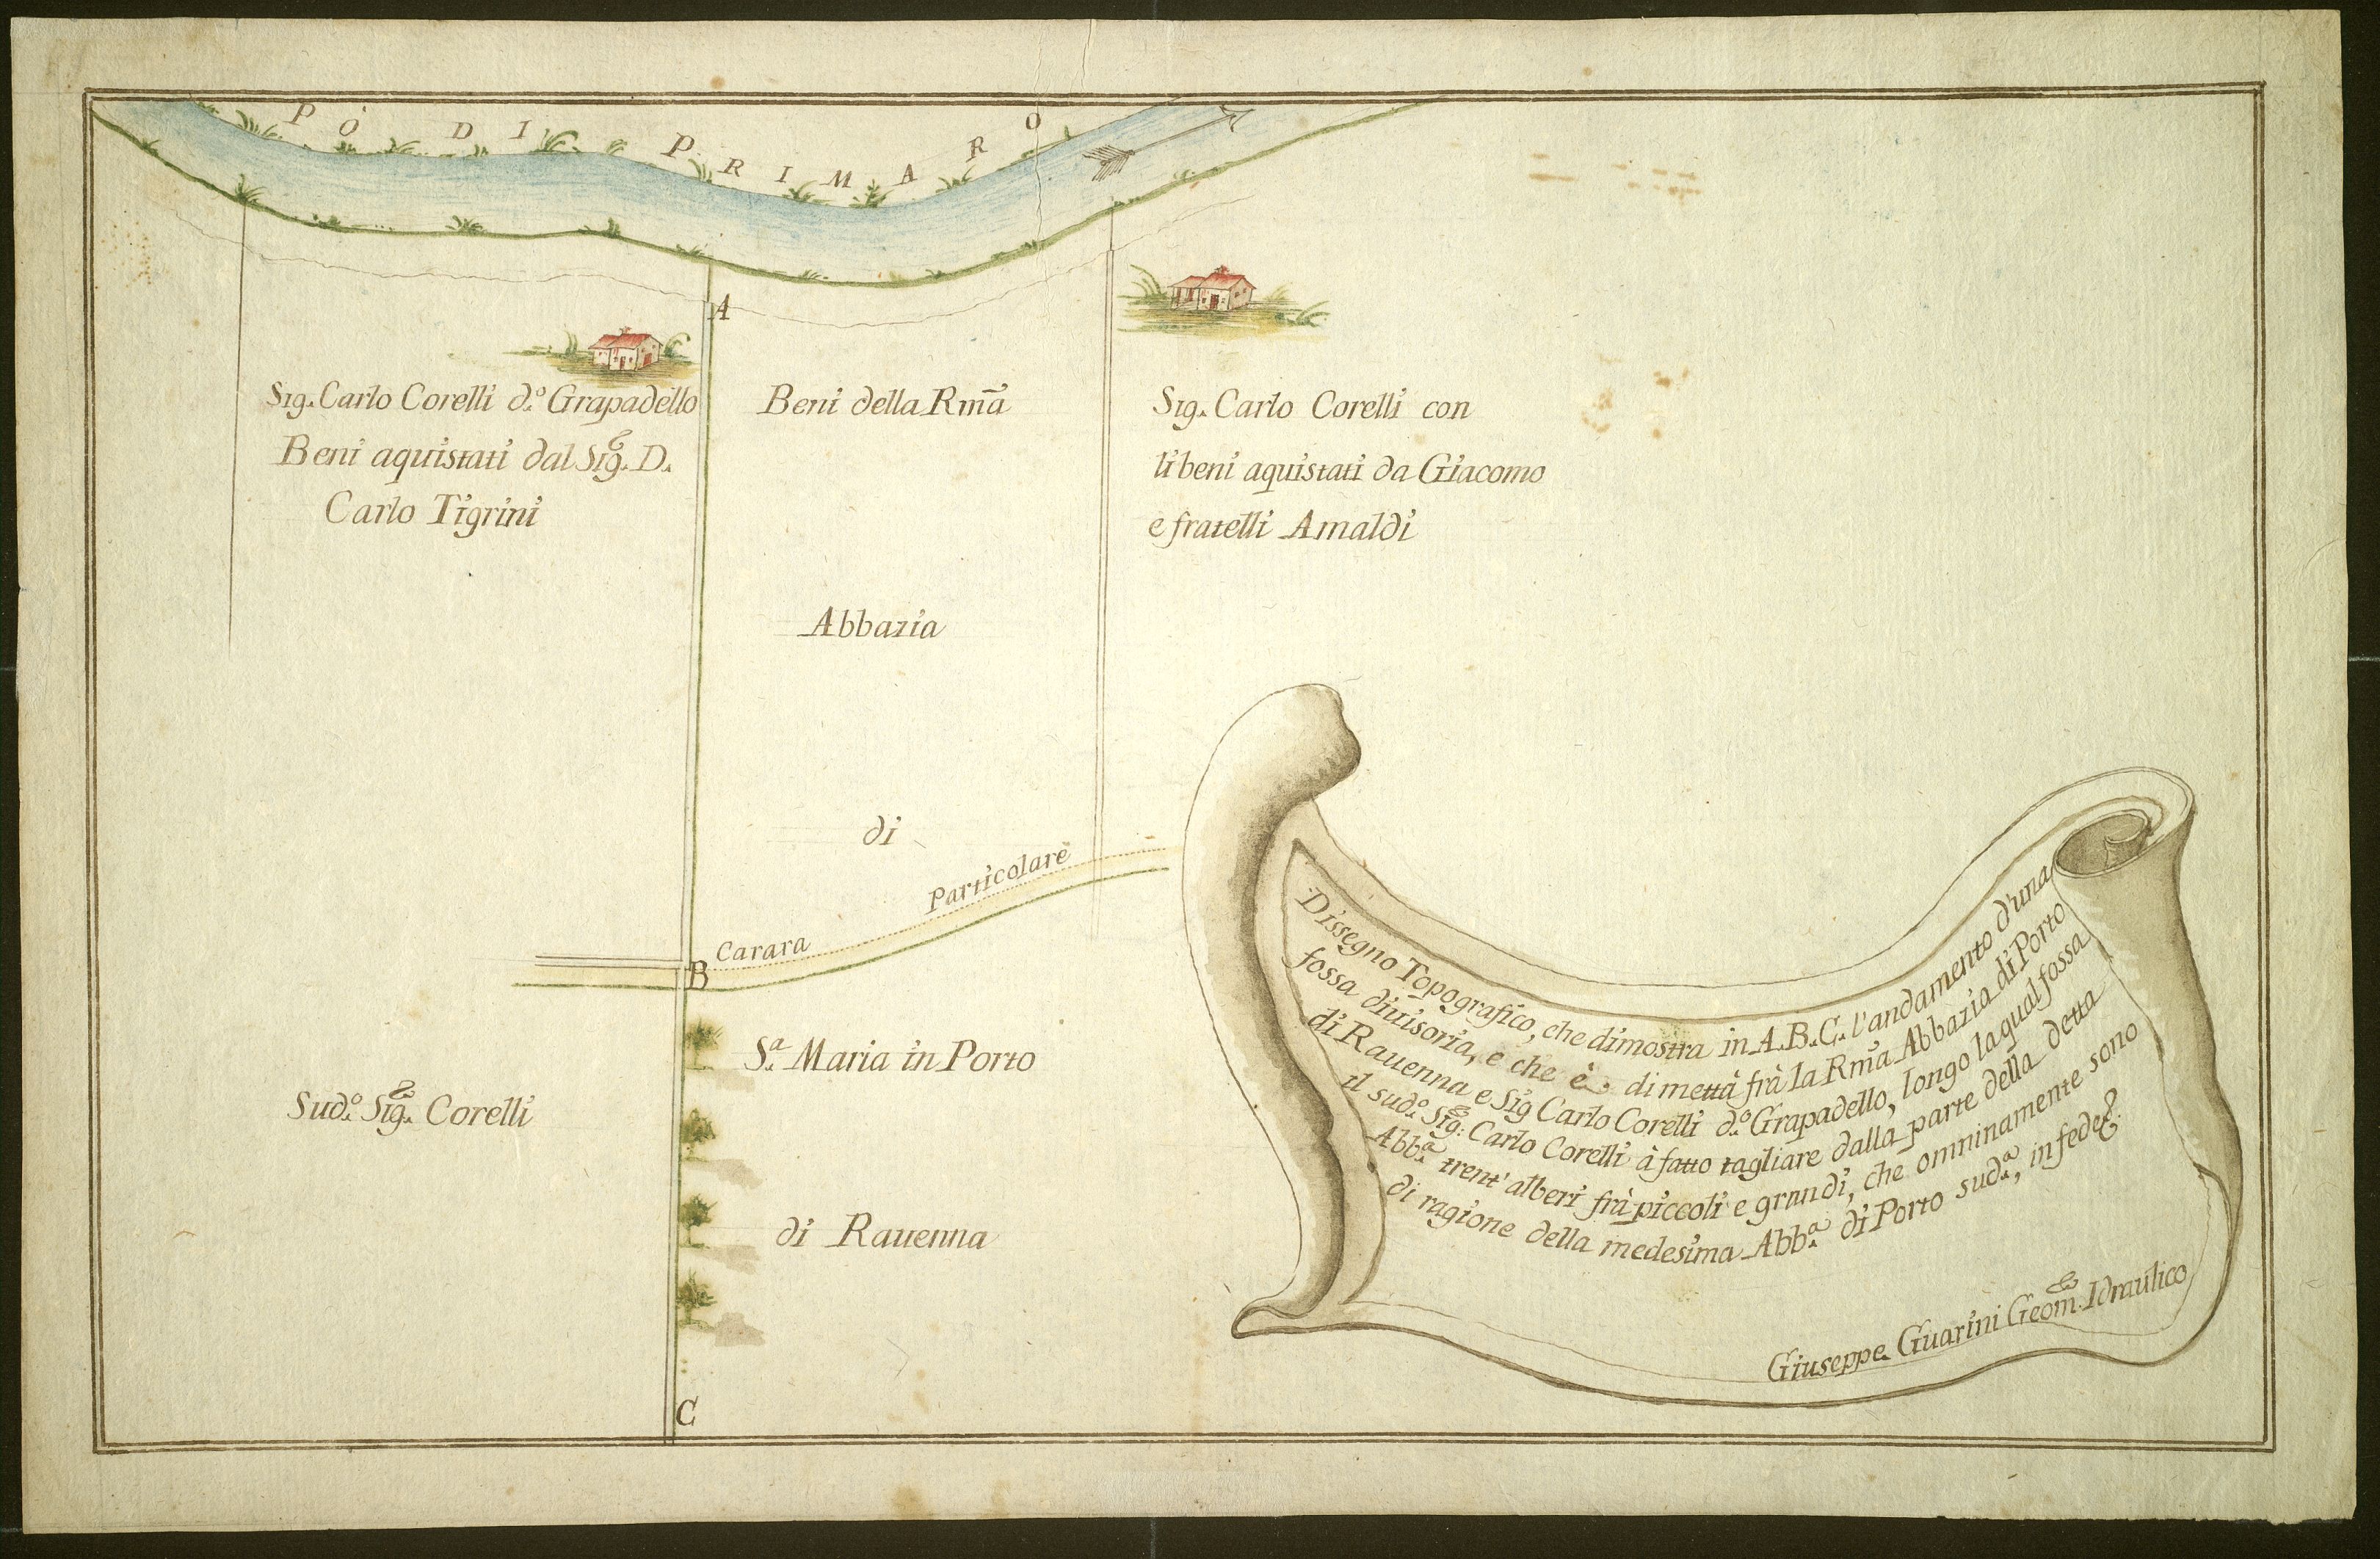 PÒ DI PRIMARO
A
Sig. Carlo Corelli d.º Grapadello
Beni aquistati dal Sig.ᵉ D.
Carlo Tigrini
Beni della Rm̃a
Abbazia
di
Sig. Carlo Corelli con
li beni aquistati da Giacomo
e fratelli Arnaldi
Carara Particolare
B
S.ª Maria in Porto
di Rauenna
Sud.º Sig.ᵉ Corelli
C
Dissegno Topografico, che dimostra in A.B.C. l'andamento d'una
fossa diuisoria, e che è di mettà frà la Rm̃a Abbazia di Porto
di Rauenna e Sig Carlo Corelli d.º Grapadello, longo la qual fossa
il sud.º Sig.ᵉ: Carlo Corelli à fatto tagliare dalla parte della detta
Abb.ª trent' alberi frà piccoli e grandi, che omninamente sono
di ragione della medesima Abb.ª di Porto sud.ª, in fede &.
Giuseppe Guarini Geom.ᵉ Idraulico